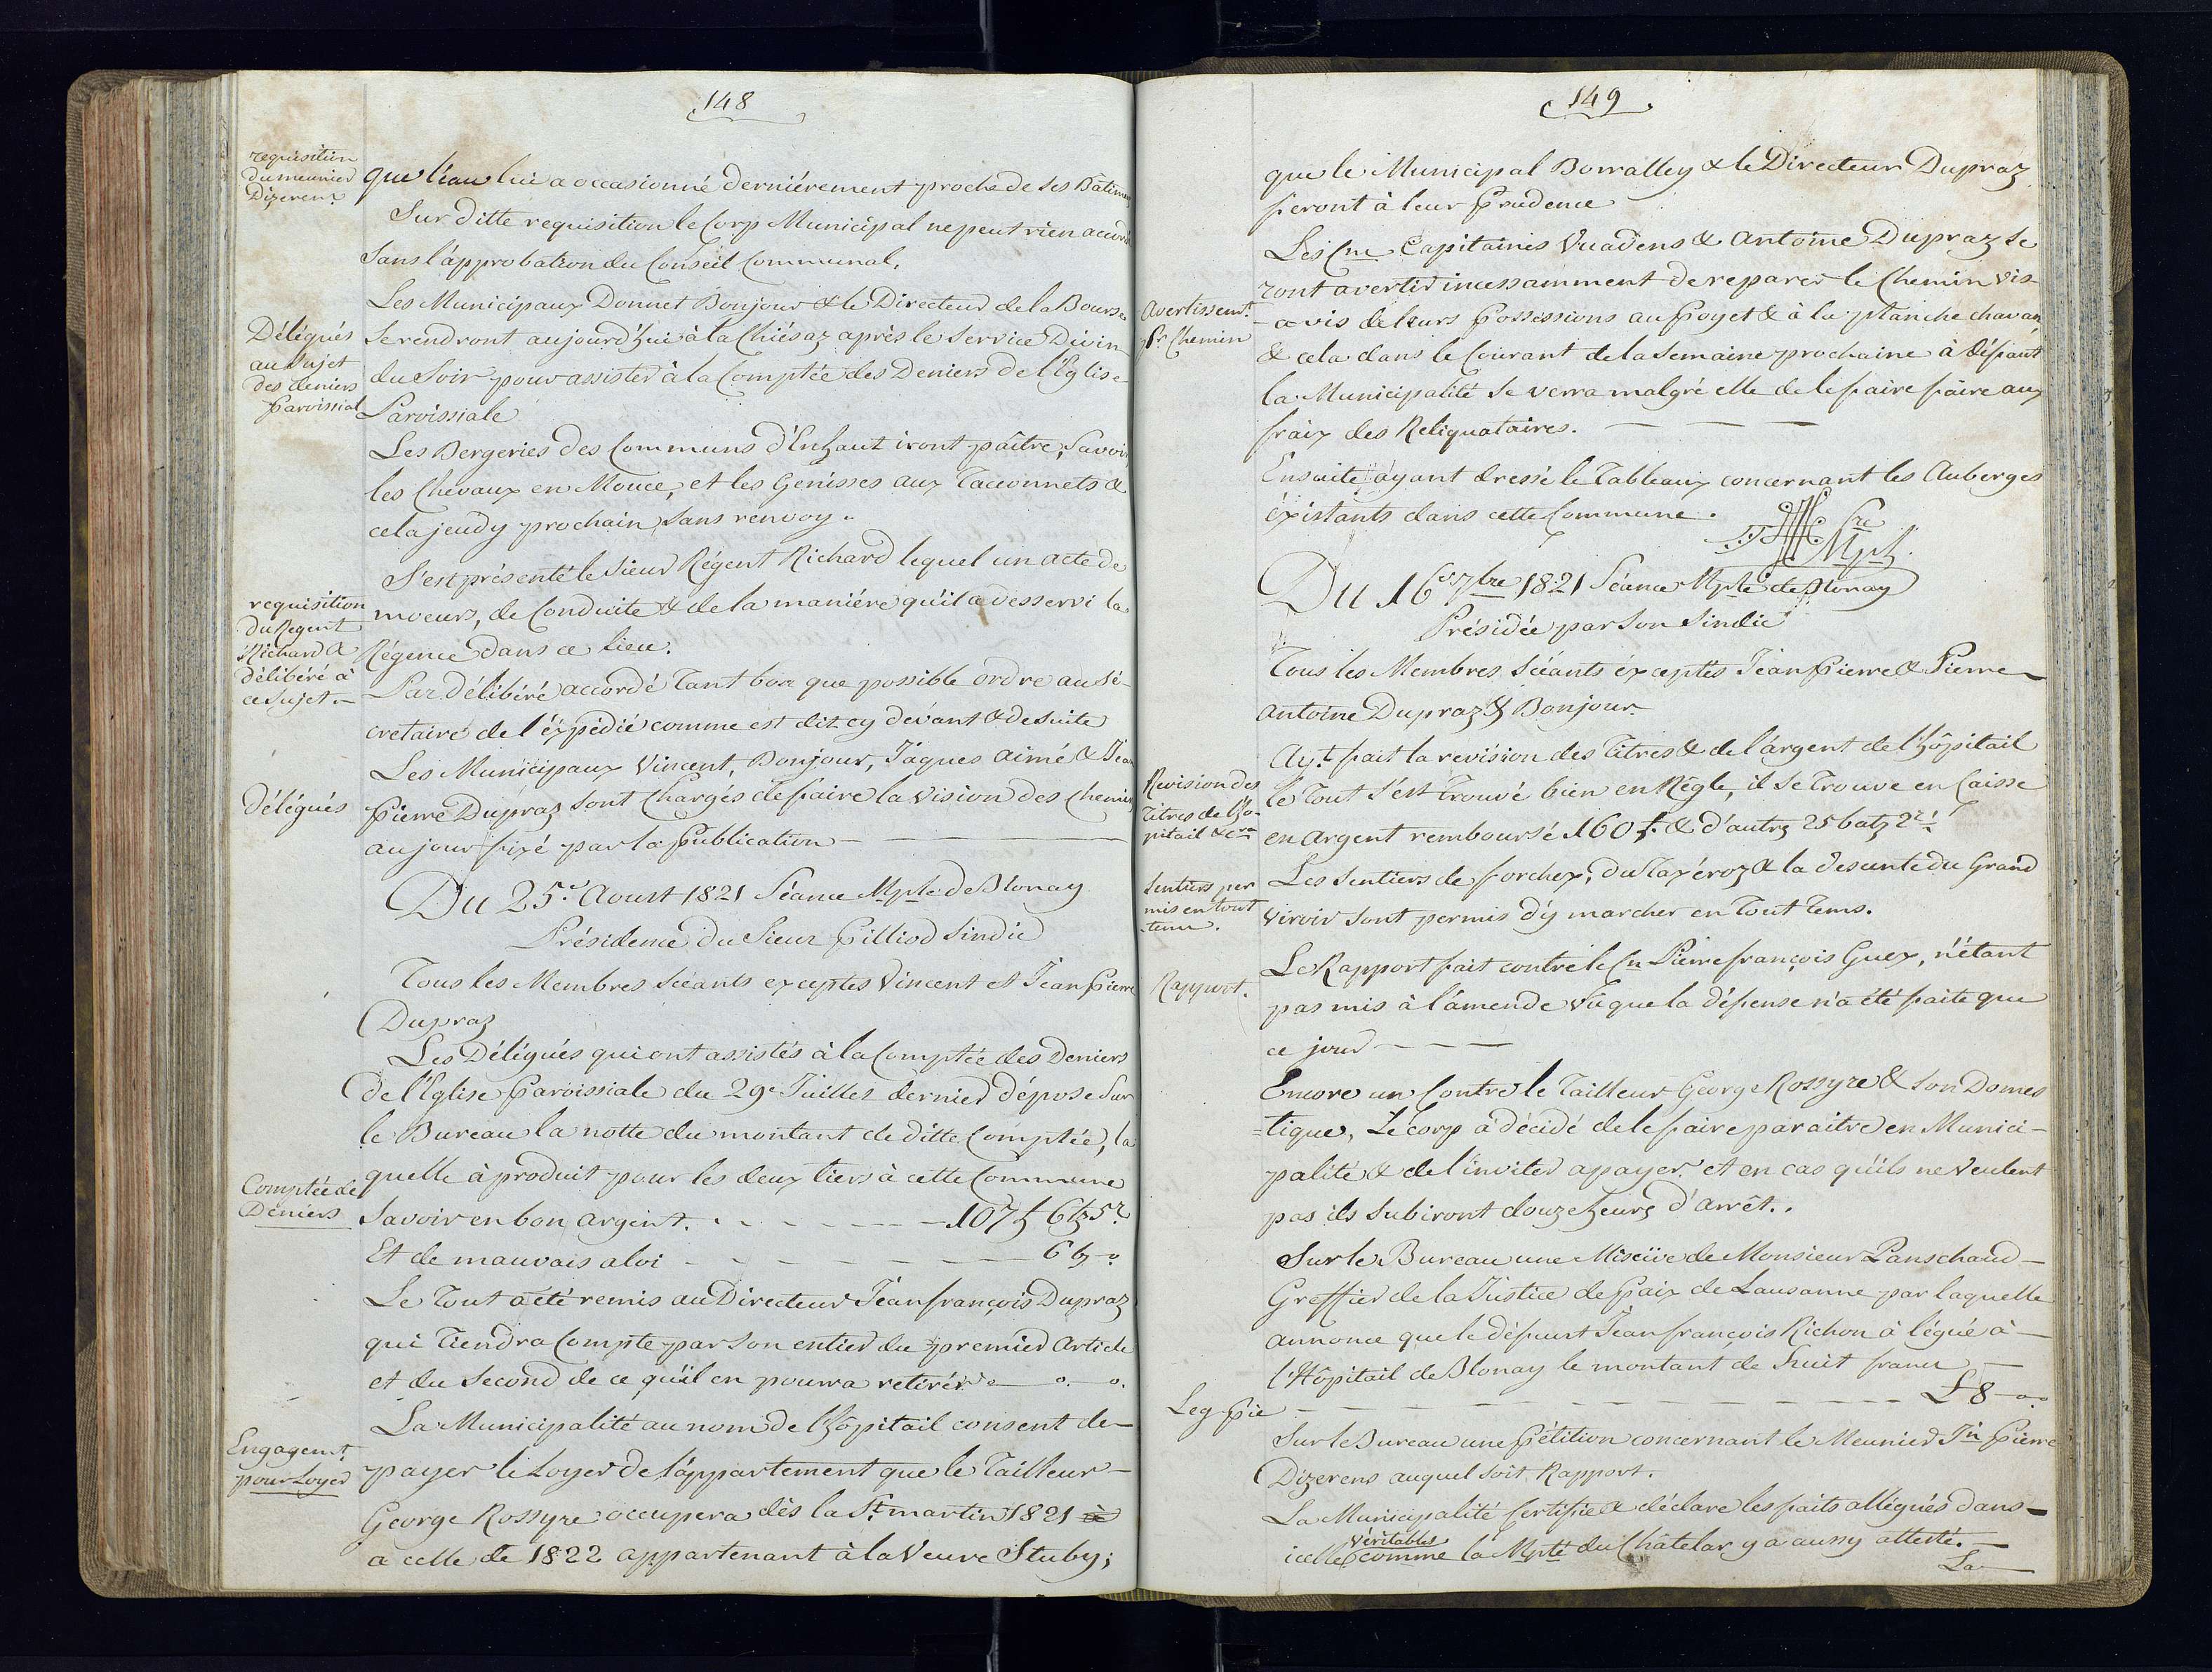 148
requisition
du meunier
Dizerenz
que l'eau lui a occasionné derniérement proche de ses Bâtimen
Sur ditte requisition le Corp Municipal ne peut rien accord
Sans l'approbation du Conseil Communal.
Les Municipaux Donnet Bonjour & le Directeur de la Bourse
Délégués
au Sujet
des deniers
Paroissial
Se rendront aujourd'hui à la Chiésaz après le Service Divin
du Soir pour assister à la Comptée des Deniers de l'Eglise
Paroissiale
Les Bergeries des Communs d'Enhaut iront paître, Savoir
les Chevaux en Mouce, et les Genisses aux Tacconnets &
cela jeudy prochain sans renvoy.
S'est présenté le Sieur Régent Richard lequel un acte de
requisition
du Regent
Richard &
délibéré à
ce Sujet
moeurs, de Conduite & de la maniére qu'il a desservi la
Régence dans ce lieu.
Par délibéré accordé Tant bon que possible ordre au Sé-
cretaire de l'éxpédié comme est dit cy dévant & de suite
Les Municipaux Vincent, Bonjour, Jâques Aimé & Jean
Délégués
Pierre Dupraz sont Chargés de faire la Vision des Chemin
au jour fixé par la Publication
Du 25.e Aoust 1821 Séance Mple de Blonay
Présidence du Sieur Pilliod Sindic
Tous les Membres Séeants exceptés Vincent et Jean Pierre
Dupraz
Les Délégués qui ont assistés à la Comptée des Deniers
de l'Eglise Paroissiale du 29e Juillet dernier dépose Sur
le Bureau la notte du montant de ditte Comptée, la
quelle à produit pour les deux tiers à cette Commune
Comptée de
Deniers
Savoir en bon argent. 107 f 6 bz 5 r
Et de mauvais aloi 6 bz
Le Tout a été remis au Directeur Jean françois Dupraz
qui Tiendra Compte par Son entier du premier Article
et du Second de ce qu'il en pourra retirér
La Municipalité au nom de l'hôpitail consent de
Engagemt
pour Loyer
payer le Loyer de l'appartement que le Tailleur
George Rossyre occupera dès la St. martin 1821 à
a celle de 1822 appartenant à la Veuve Stuby;
149
que le Municipal Bonjour & le Directeur Dupraz
feront à leur Prudence
Les Cne Capitaines Vuadens & Antoine Dupraz Se
ront avertir incessamment de reparer le Chemin vis-
Avertissemt.
Pr. Chemin
-a vis de leurs Possessions au Poyet & à la planche chavan
& cela dans le Courant de la Semaine prochaine à défaut
la Municipalité Se verra malgré elle de le faire faire aux
fraix des Reliquataires.
Ensuite ayant dressé le Tableaux concernant les Auberges
éxistants dans cette Commune.
Du 16e 7bre 1821 Séance Mple de Blonay
Présidée par Son Sindic
Tous les Membres Séeants éxceptés Jean Pierre & Pierre
Antoine Dupraz & Bonjour.
Ayt. fait la revision des Titres & de l'argent de l'hôpitail
Revision des
Titres de l'hô-
pitail &ca
le Tout s'est trouvé bien en Régle, il Se trouve en Caisse
en Argent remboursé 160 f. & d'autre 25 batz 2 r.
Sentiers per
mis en tout
tems.
Les Sentiers de forchex, du Taxéroz & la desente du Grand
Viroir sont permis d'y marcher en Tout Tems.
Rapport.
Le Rapport fait contre le Cn Pierre françois Guex, n'étant
pas mis à l'amende Vû que la défense n'a été faite que
ce jour
Encore un Contre le Tailleur George Rossyre & Son Domes
tique, Le corp à décidé de le faire paraitre en Munici-
palité & de l'inviter a payer et en cas qu'ils ne Veulent
pas ils Subiront douze heurs d'arrêt.
Sur le Bureau une Missive de Monsieur Panschaud
Greffier de la Justice de Paix de Lausanne par laquelle
annonce que le défunt Jean françois Richon à légué à
l'Hôpitail de Blonay le montant de huit francs
Leg Pie
£ 8
Sur le Bureau une Pétition concernant le Meunier Jn Pierre
Dizerens auquel Soit Rapport.
La Municipalité Certifie & déclare les faits allégués dans
véritables
icelle comme la Mpté du Châtelar y a aussy attesté.
La